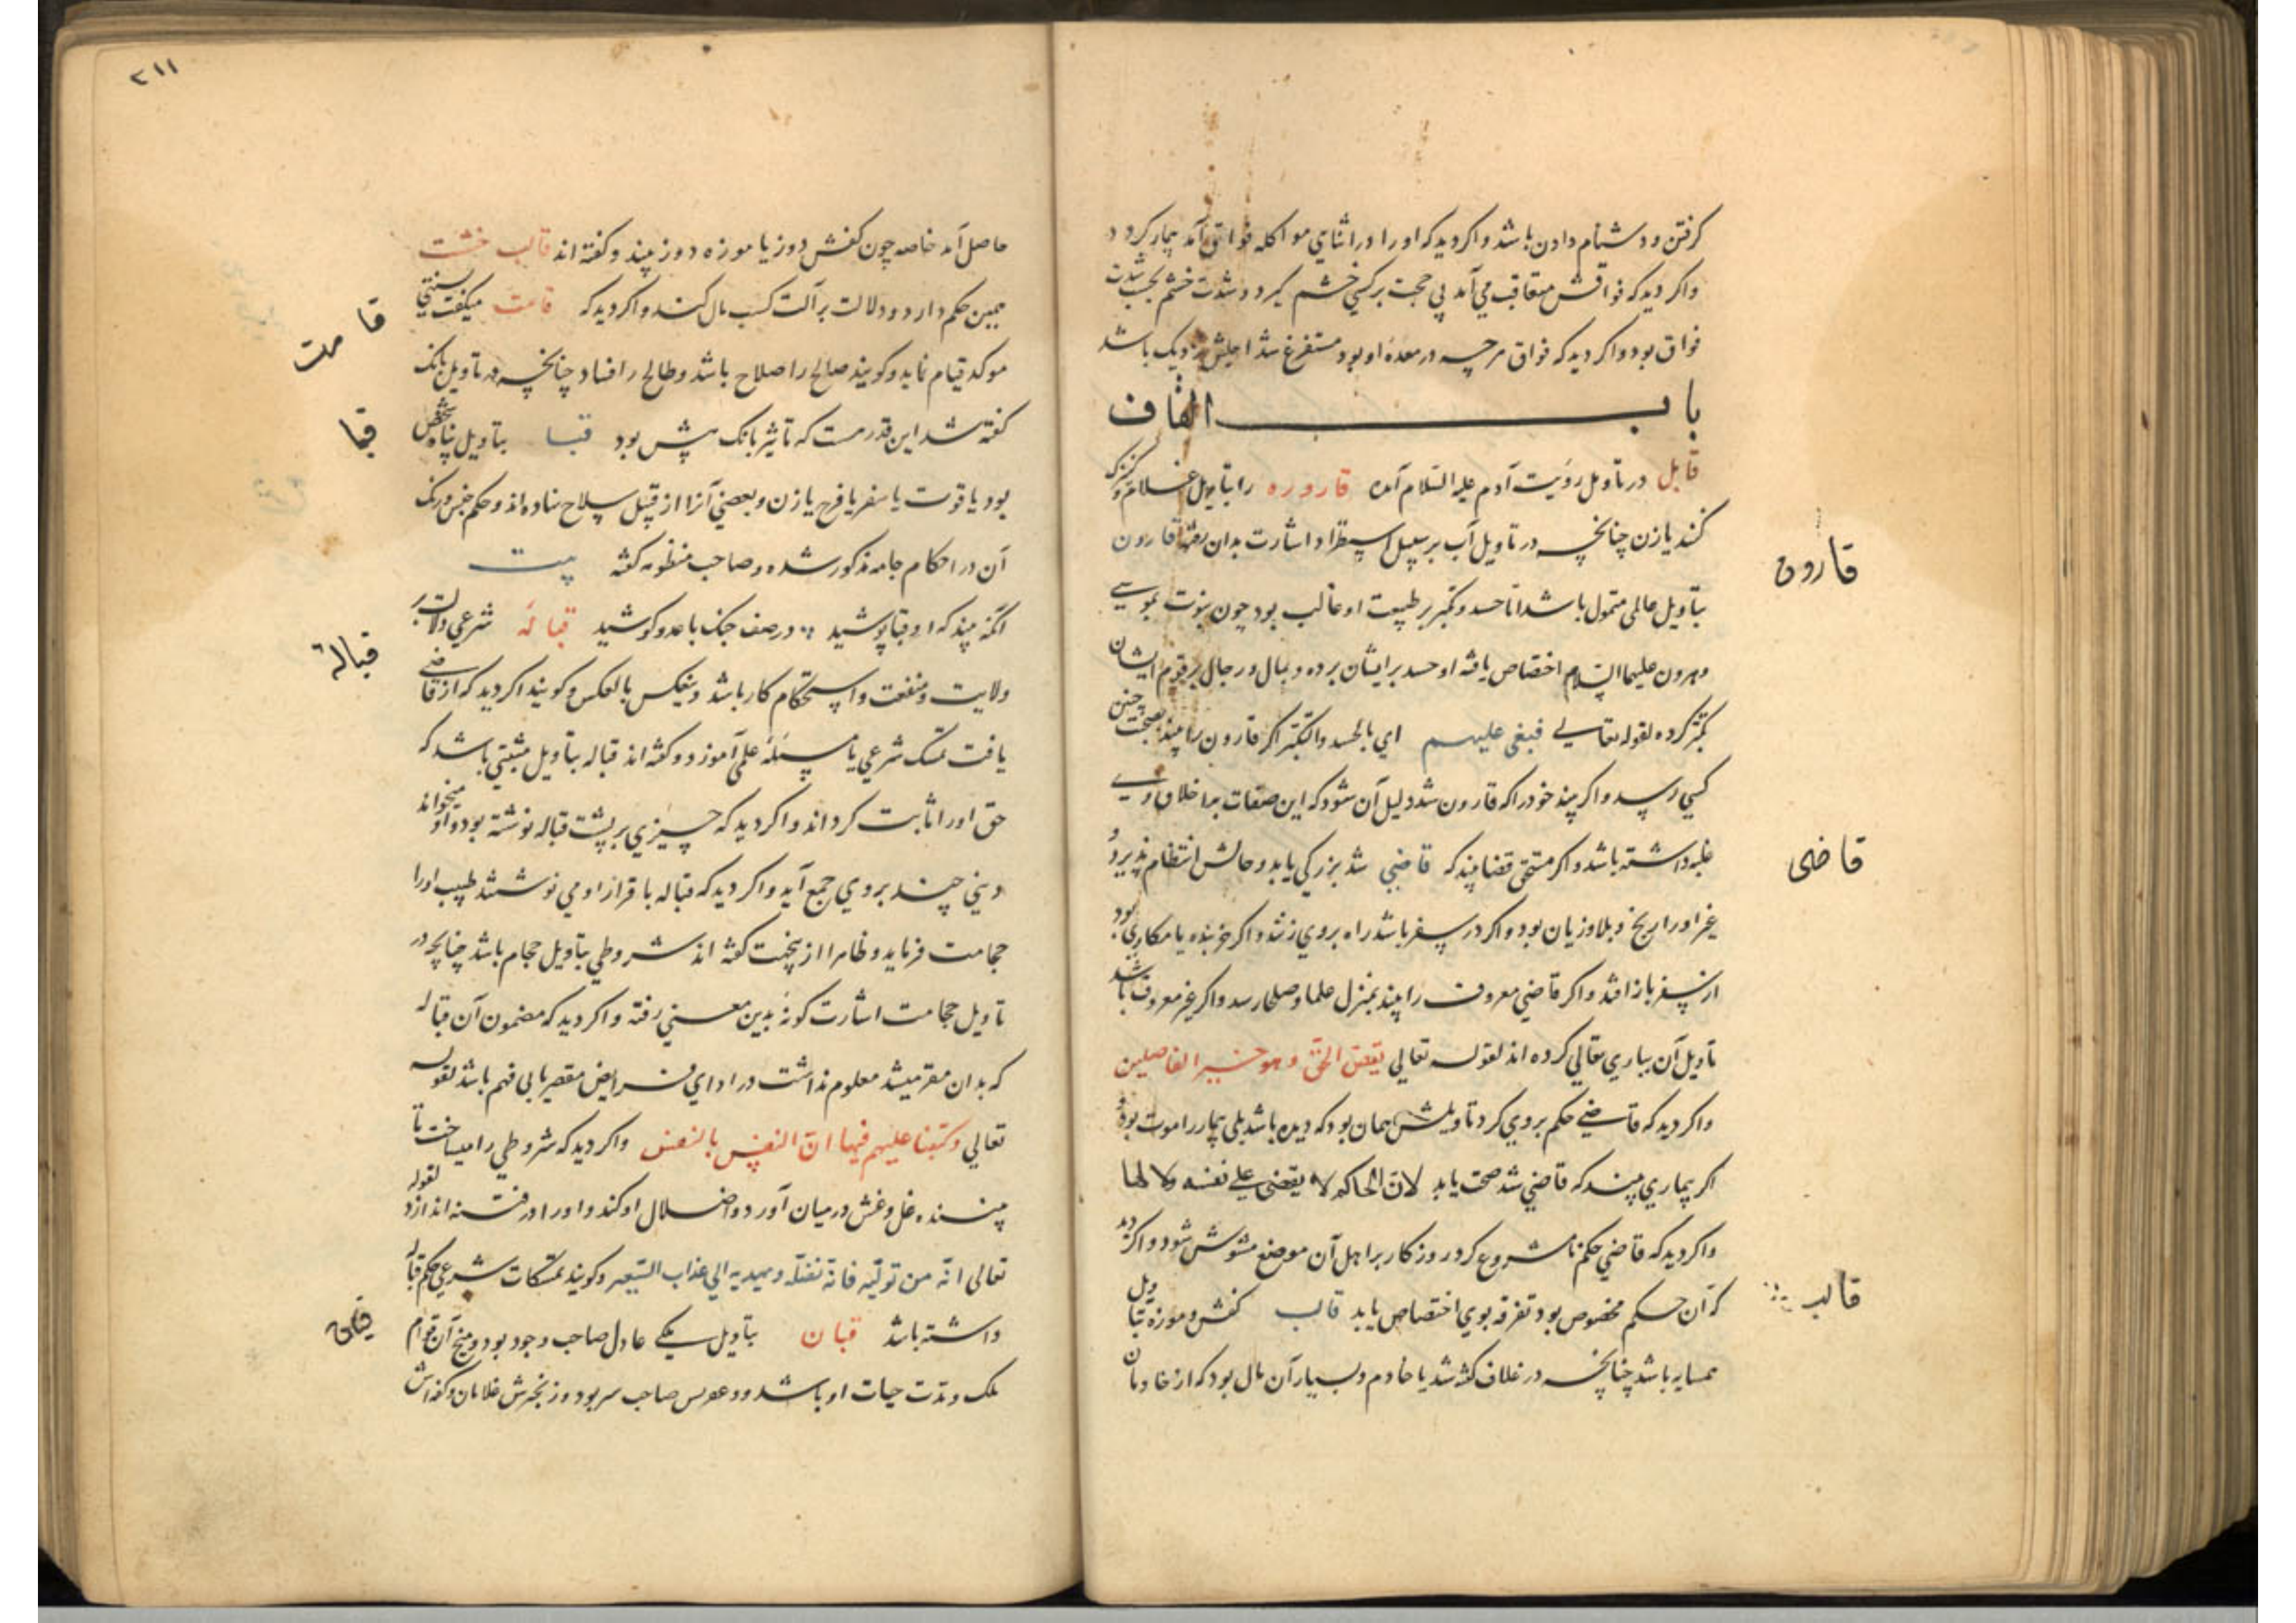 گرفتن و دشنام دادن باشد و اکر دید که او را در اثنای مواکله فواق آمد بیمار کردد
واکر دید که فواقش متعاقب می آمد بی حجت بر کسی خشم کیرد و شدت خشم بحسب شدت
فواق بود و اکر دید که فواق هرچه در معده او بود مستفرغ شد اجلش نزدیک باشد
باب القاف
قابل در تاویل رؤیت آدم علیه السلام آمده قاروره را بتاویل غلام و کنیزک
کنند یا زن چنانچه در تاویل آب بر سبیل استطراد اشارت بدان رفته قارون
بتاویل عالمی متمول باشد اما حسد و تکبر بر طبیعت او غالب بود چون نبوت بموسی
و هرون علیهما السلام اختصاص یافه او حسد بر ایشان برده و بمال و رجال بر قوم ایشان
تکبر کرده لقوله تعالی فبغی علیهم ای بالحسد والتکبر اکر قارون را بیند بصحبت چنین
کسی رسد و اکر بیند خود را که قارون شد دلیل آن شود که این صفات بر اخلاق وی
غلبه داشته باشد و اکر مستحق قضا بیند که قاضی شد بزرکی یابد و حالش انتظام پذیرد و
غیر او را رنج و بلا و زیان بود و اکر در سفر باشد راه بر وی زنند و اکر خربنده یا مکاری بود
از سفر باز افتد و اکر قاضی معروف را بیند بمنزل علما و صلحا رسد و اکر غیر معروف باشد
تاویل آن بباری تعالی کرده اند لقوله تعالی یقص الحق وهو خیر الفاصلین
واکر دید که قاضی حکم بر وی کرد تاویلش همان بود که دیده باشد بلی بیمار را موت بود و
اکر بیماری بیند که قاضی شد صحت یابد لان الحاکم لا یقضی علی نفسه ولا لها
واکر دید که قاضی حکم نامشروع کرد روزکار بر اهل آن موضع مشوش شود و اکر دید
که آن حکم مخصوص بود تفرقه بوی اختصاص یابد قالب کفش و موزه بتاویل
همسایه باشد چنانچه در غلاف کفته شد یا خادم و بسیار آن مال بود که از خادمان
قارون
قاضی
قالب
۲۱۱
حاصل آمد خاصه چون کفش دوز یا موزه دوز بیند و کفته اند قالب خشت
همین حکم دارد و دلالت بر آلت کسب مال کند و اکر دید که قامت میکفت بسنتی
موکد قیام نماید و کویند صالح را صلاح باشد و طالح را فساد چنانچه در تاویل بانک
کفته شد این قدر هست که تاثیر بانک بیش بود قبا بتاویل پناه شخص
بود یا قوت یا سفر یا فرح یا زن و بعضی آنرا از قبیل سلاح نهاده اند و حکم جنس و رنک
آن در احکام جامه مذکور شده و صاحب منظومه کفته بیت
انکه بیند که او قبا پوشید در صف جنک با عدو کوشید قباله شرعی دلالت بر
ولایت و منفعت و استحکام کار باشد و بعکس بالعکس و کویند اکر دید که از قاضی
یافت تمسک شرعی یا مسئله علمی آموزد و کفته اند قباله بتاویل مثبتی باشد که
حق او را ثابت کرداند و اکر دید که چیزی بر پشت قباله نوشته بود و او میخواند
دینی چند بروی جمع آید و اکر دید که قباله باقرار او می نوشتند طبیب او را
حجامت فرماید و ظاهرا ازینجهت کفته اند شروطی بتاویل حجام باشد چنانچه در
تاویل حجامت اشارت کونه بدین معنی رفته و اکر دید که مضمون آن قباله
که بدان مقر میشد معلوم نداشت در ادای فرایض مقصر یا بی فهم باشد لقوله
تعالی وکتبنا علیهم فیها ان النفس بالنفس واکر دید که شروطی را میساخت تا
بیننده غل و غش در میان آورد و اضلال او کند و او را در فتنه اندازد لقوله
تعالی انه من تولیه فانه یضله ویهدیه الی عذاب السعیر و کویند تمسکات شرعی حکم قباله
داشته باشد قبان بتاویل ملکی عادل صاحب وجود بود و میخ آن قوام
ملک و مدت حیات او باشد و عروس صاحب سر بود و زنجیرش غلامان و کفه اش
قامت
قبا
قباله
قبان